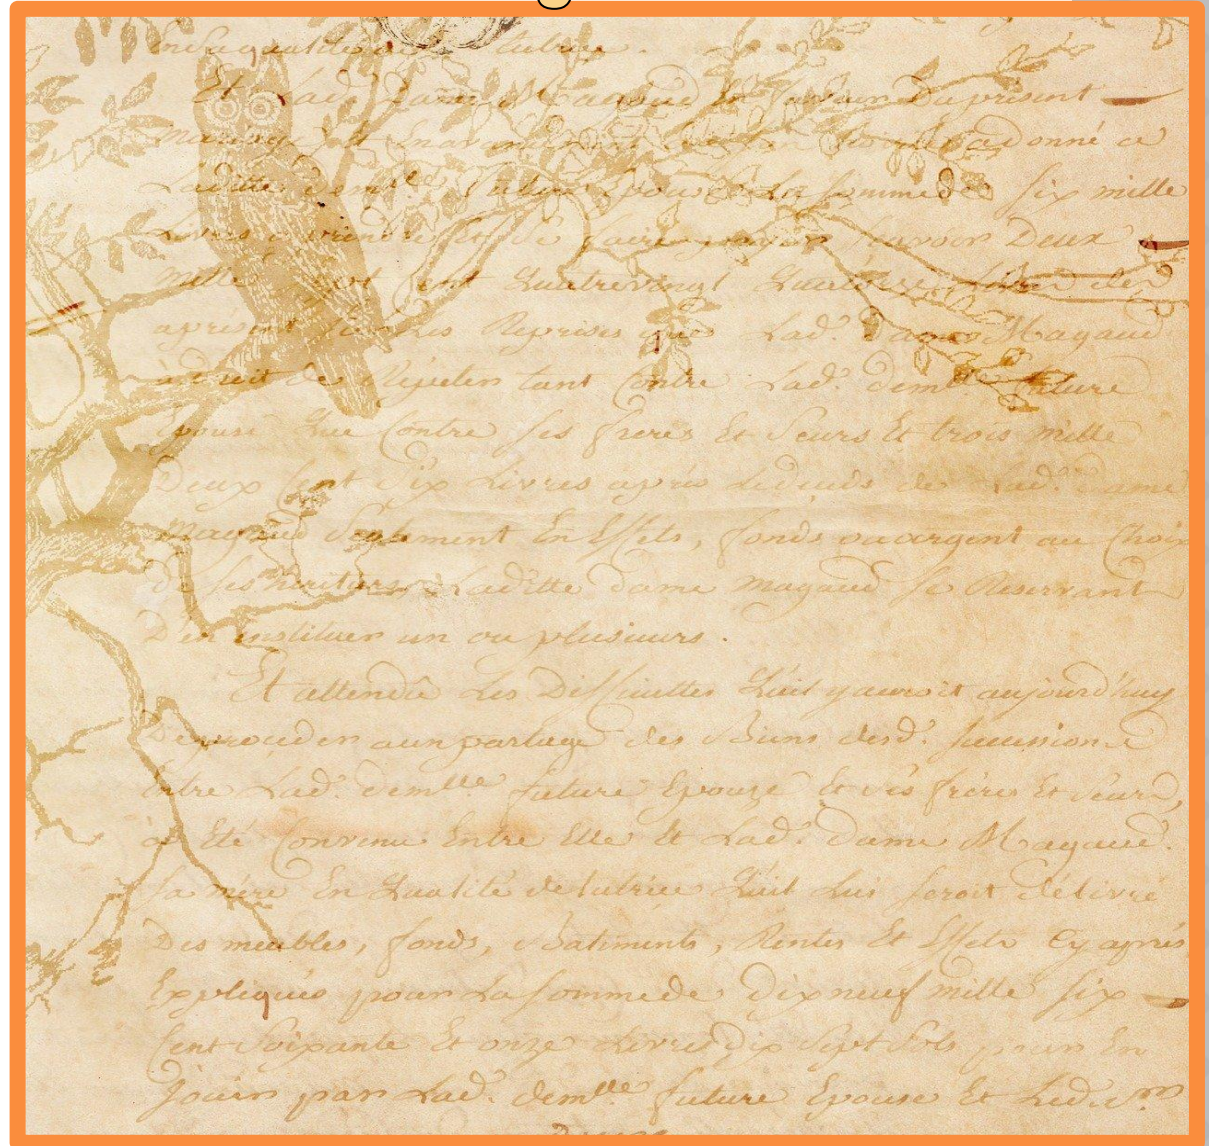 En sa qualité de tutrice.
Et Lad. Dame Magaud en faveur Du present
mariage et donné a
Laditte demlle future Epouse La somme de six mille
Livres a prendre savoir Deux
Mille Sept Cent Quatrevingt Livres
Reprises que Lad. Dame Magaud
à droit de Répeter tant Contre Lad. demlle future
Epouse Que Contre ses freres Et Seurs Et trois mille
Deux Cent Six Livres après le décès de Lad. Dame
Magaud Seulement En Effets, fonds ou argent au Choix
De ses heritiers Laditte dame magaud se Reservant
D'en instituer un ou plusieurs.
Et attendu Les Difficultés Quil y auroit aujourd'huy
De proceder a un partage des Biens desd. succession
Entre Lad. demlle future Epouze Et ses frères Et seurs,
à Eté Convenu Entre Elle Et Lad. Dame Magaud.
sa mère En Qualité de tutrice Quil lui seroit délivré
Des meubles, fonds, Batiments, Rentes Et Effets Cy après
Expliqués pour La somme de dix neuf mille six
Cent Soixante Et onze Livres Dix Sept Sols pour En
Jouir par Lad. demlle future Epouse Et Led. Sr